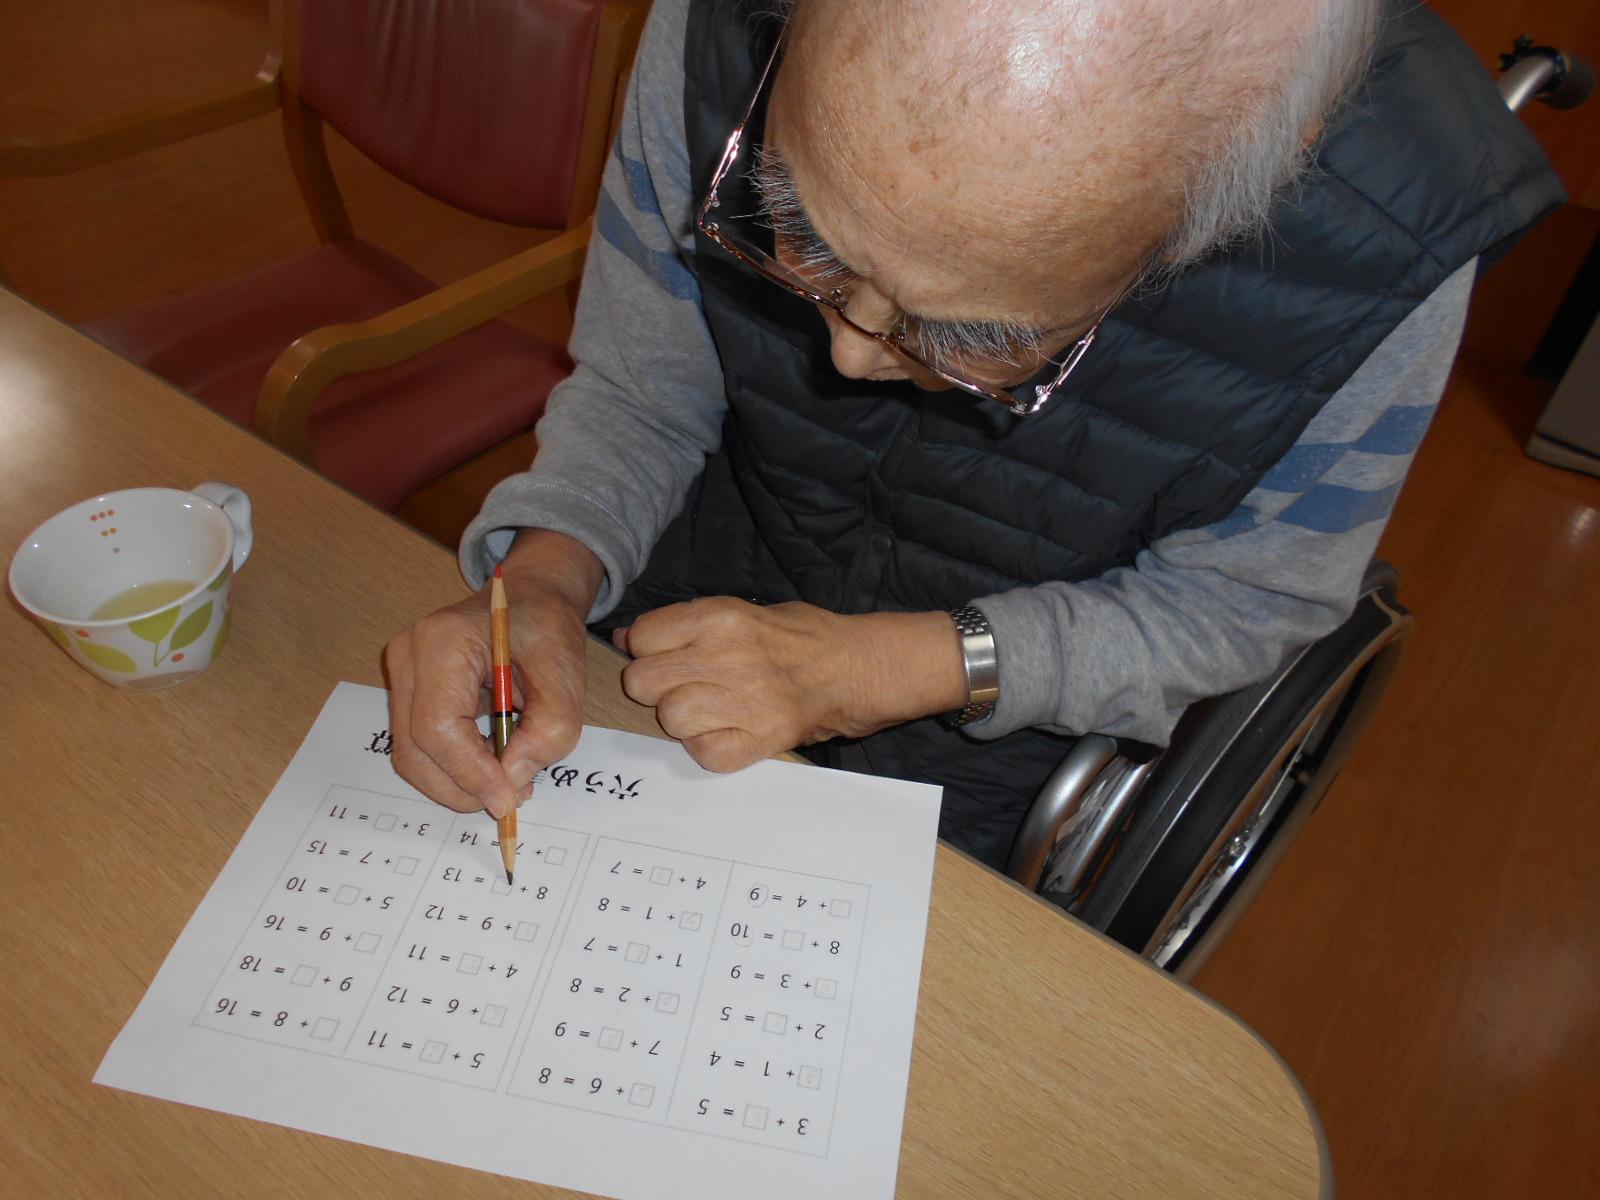 穴うめ 算
3 + □ = 5
□ + 1 = 4
2 + □ = 5
□ + 3 = 9
8 + □ = 10
□ + 4 = 9
□ + 6 = 8
7 + □ = 9
□ + 2 = 8
1 + □ = 7
□ + 1 = 8
4 + □ = 7
5 + □ = 11
□ + 6 = 12
4 + □ = 11
□ + 9 = 12
8 + □ = 13
□ + 7 = 14
□ + 8 = 16
9 + □ = 18
□ + 9 = 16
5 + □ = 10
□ + 7 = 15
3 + □ = 11